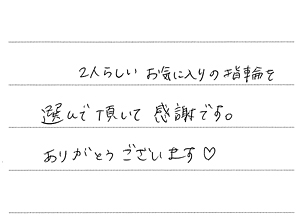 2人らしい お気に入りの指輪を
選んで頂いて 感謝です。
ありがとうございます♡